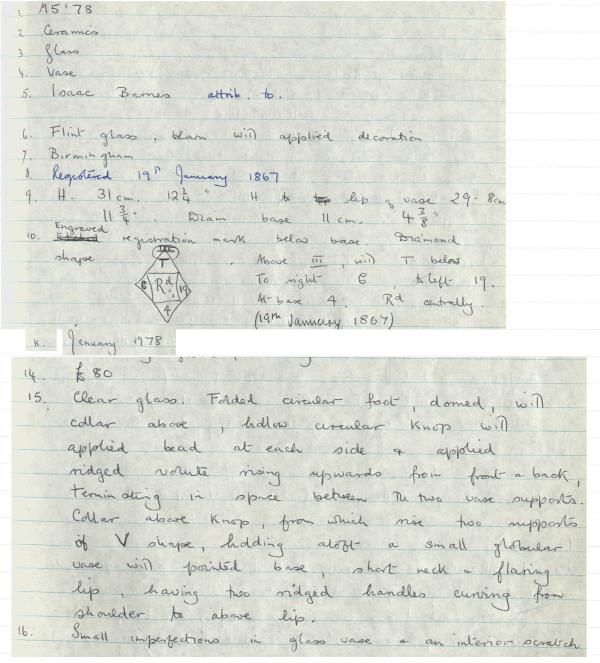 1. M5'78
2. Ceramics
3. Glass
4. Vase
5. Isaac Barnes attrib. to.
6. Flint glass, blown with applied decoration
7. Birmingham
8. Registered 19th January 1867
9. H. 31 cm. 12 1/4" H to lip of vase 29.8cm
11 3/4". Diam base 11 cm. 4 3/8"
10. Engraved registration mark below base. Diamond
shape . Above III, with T below
To right 6, to left 19.
At base 4. Rd centrally.
(19th January 1867)
III
T
6 Rd 19
4
11. January 1978
14. £80
15. Clear glass. Folded circular foot, domed, with
collar above, hollow circular knop with
applied bead at each side & applied
ridged volute rising upwards from front & back,
terminating in space between the two vase supports.
Collar above knop, from which rise two supports
of V shape, holding aloft a small globular
vase with pointed base, short neck & flaring
lip, having two ridged handles curving from
shoulder to above lip.
16. Small imperfections in glass vase & an interior scratch